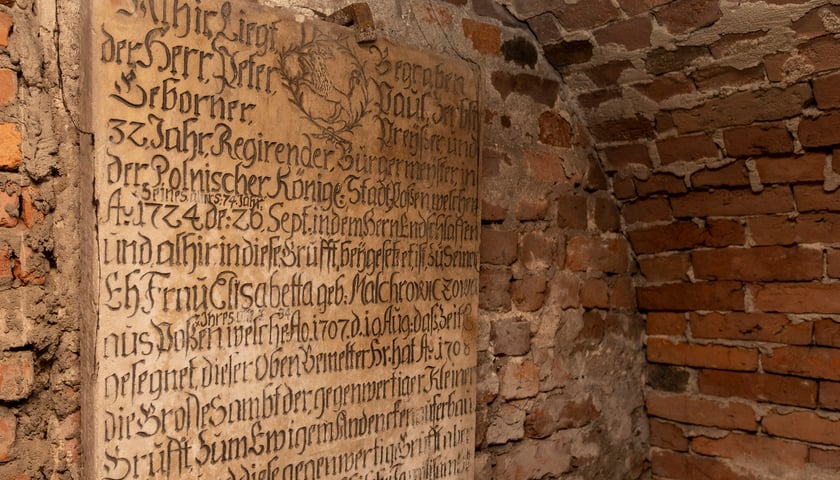 Alhir Liegt Begraben
der Herr, Peter, Paul,
Geborner,
32 Jahr Regirender Bürgermeister in
der Polnischer Könige Stadt Poßen welcher
Seines alters 74 Jahr
Ao: 1724 de: 26 Sept: in dem Herrn Endschlaffen
und alhir in diese Grufft beÿgesetzet ist zu Seiner
Eh Frau Elisabetta geb: Malchrowiczown
aus Poßen welche Ao. 1707. d. 10 Aug: daß Zeitl
gesegnet, dieser Oben Bemelter Hr. hat Ao: 1708
die Große Sambt der gegenwertiger Kleiner
Grufft Zum Ewigem Andencken auferbau
diese gegenwertige Grufft aber